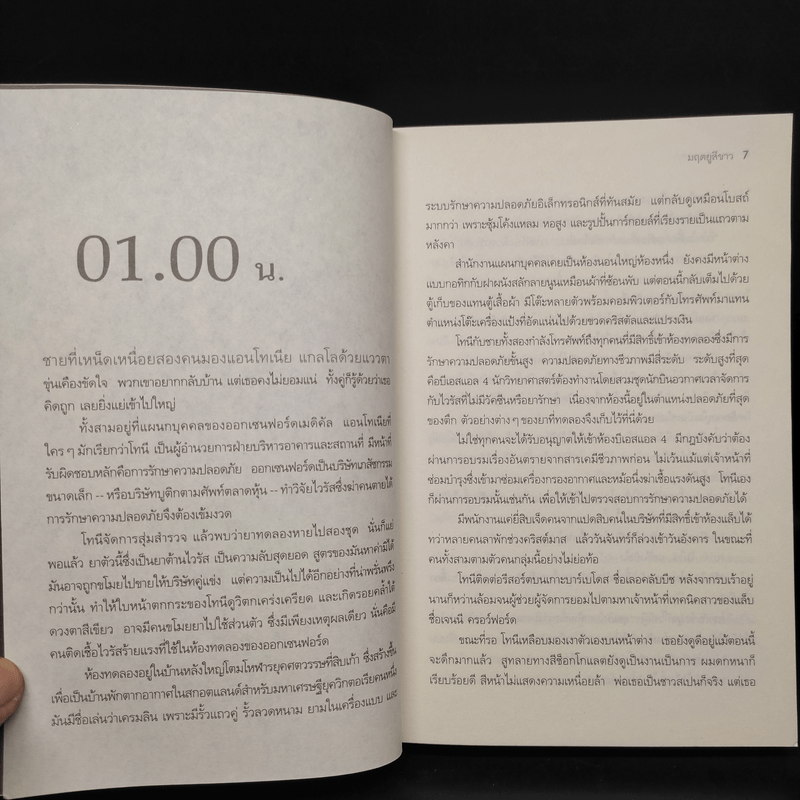 01.00 น.
ชายที่เหน็ดเหนื่อยสองคนมองแอนโทเนีย แกลโลด้วยแววตา
ขุ่นเคืองขัดใจ พวกเขาอยากกลับบ้าน แต่เธอคงไม่ยอมแน่ ทั้งคู่ก็รู้ด้วยว่าเธอ
คิดถูก เลยยิ่งแย่เข้าไปใหญ่
ทั้งสามอยู่ที่แผนกบุคคลของออกเซนฟอร์ดเมดิคัล แอนโทเนียที่
ใครๆ มักเรียกว่าโทนี เป็นผู้อำนวยการฝ่ายบริหารอาคารและสถานที่ มีหน้าที่
รับผิดชอบหลักคือการรักษาความปลอดภัย ออกเซนฟอร์ดเป็นบริษัทเภสัชกรรม
ขนาดเล็ก -- หรือบริษัทบูติกตามศัพท์ตลาดหุ้น -- ทำวิจัยไวรัสซึ่งฆ่าคนตายได้
การรักษาความปลอดภัยจึงต้องเข้มงวด
โทนีจัดการสุ่มสำรวจ แล้วพบว่ายาทดลองหายไปสองชุด นั่นก็แย่
พอแล้ว ยาตัวนี้ซึ่งเป็นยาต้านไวรัส เป็นความลับสุดยอด สูตรของมันหาค่ามิได้
มันอาจถูกขโมยไปขายให้บริษัทคู่แข่ง แต่ความเป็นไปได้อีกอย่างที่น่าพรั่นพรึง
กว่านั้น ทำให้ใบหน้าตกกระของโทนีดูวิตกเคร่งเครียด และเกิดรอยคล้ำใต้
ดวงตาสีเขียว อาจมีคนขโมยยาไปใช้ส่วนตัว ซึ่งมีเพียงเหตุผลเดียว นั่นคือมี
คนติดเชื้อไวรัสร้ายแรงที่ใช้ในห้องทดลองของออกเซนฟอร์ด
ห้องทดลองอยู่ในบ้านหลังใหญ่โตมโหฬารยุคศตวรรษที่สิบเก้า ซึ่งสร้างขึ้น
เพื่อเป็นบ้านพักตากอากาศในสกอตแลนด์สำหรับมหาเศรษฐียุควิกตอเรียคนหนึ่ง
มันมีชื่อเล่นว่าเครมลิน เพราะมีรั้วแถวคู่ รั้วลวดหนาม ยามในเครื่องแบบ และ
มฤตยูสีขาว 7
ระบบรักษาความปลอดภัยอิเล็กทรอนิกส์ที่ทันสมัย แต่กลับดูเหมือนโบสถ์
มากกว่า เพราะซุ้มโค้งแหลม หอสูง และรูปปั้นการ์กอยล์ที่เรียงรายเป็นแถวตาม
หลังคา
สำนักงานแผนกบุคคลเคยเป็นห้องนอนใหญ่ห้องหนึ่ง ยังคงมีหน้าต่าง
แบบกอทิกกับฝาผนังสลักลายนูนเหมือนผ้าที่ซ้อนพับ แต่ตอนนี้กลับเต็มไปด้วย
ตู้เก็บของแทนตู้เสื้อผ้า มีโต๊ะหลายตัวพร้อมคอมพิวเตอร์กับโทรศัพท์มาแทน
ตำแหน่งโต๊ะเครื่องแป้งที่อัดแน่นไปด้วยขวดคริสตัลและแปรงเงิน
โทนีกับชายทั้งสองกำลังโทรศัพท์ถึงทุกคนที่มีสิทธิ์เข้าห้องทดลองซึ่งมีการ
รักษาความปลอดภัยขั้นสูง ความปลอดภัยทางชีวภาพมีสี่ระดับ ระดับสูงที่สุด
คือบีเอสแอล 4 นักวิทยาศาสตร์ต้องทำงานโดยสวมชุดนักบินอวกาศเวลาจัดการ
กับไวรัสที่ไม่มีวัคซีนหรือยารักษา เนื่องจากห้องนี้อยู่ในตำแหน่งปลอดภัยที่สุด
ของตึก ตัวอย่างต่างๆ ของยาที่ทดลองจึงเก็บไว้ที่นี่ด้วย
ไม่ใช่ทุกคนจะได้รับอนุญาตให้เข้าห้องบีเอสแอล 4 มีกฎบังคับว่าต้อง
ผ่านการอบรมเรื่องอันตรายจากสารเคมีชีวภาพก่อน ไม่เว้นแม้แต่เจ้าหน้าที่
ซ่อมบำรุงซึ่งเข้ามาซ่อมเครื่องกรองอากาศและหม้อนึ่งฆ่าเชื้อแรงดันสูง โทนีเอง
ก็ผ่านการอบรมนั้นเช่นกัน เพื่อให้เข้าไปตรวจสอบการรักษาความปลอดภัยได้
มีพนักงานแค่ยี่สิบเจ็ดคนจากแปดสิบคนในบริษัทที่มีสิทธิ์เข้าห้องแล็บได้
ทว่าหลายคนลาพักช่วงคริสต์มาส แล้ววันจันทร์ก็ล่วงเข้าวันอังคาร ในขณะที่
คนทั้งสามตามตัวคนกลุ่มนี้อย่างไม่ย่อท้อ
โทนีติดต่อรีสอร์ตบนเกาะบาร์เบโดส ชื่อเลอคลับบีช หลังจากรบเร้าอยู่
นานก็หว่านล้อมจนผู้ช่วยผู้จัดการยอมไปตามหาเจ้าหน้าที่เทคนิคสาวของแล็บ
ชื่อเจนนี ครอว์ฟอร์ด
ขณะที่รอ โทนีเหลือบมองเงาตัวเองบนหน้าต่าง เธอยังดูดีอยู่แม้ตอนนี้
จะดึกมากแล้ว สูทลายทางสีช็อกโกแลตยังดูเป็นงานเป็นการ ผมดกหนาก็
เรียบร้อยดี สีหน้าไม่แสดงความเหนื่อยล้า พ่อเธอเป็นชาวสเปนก็จริง แต่เธอ